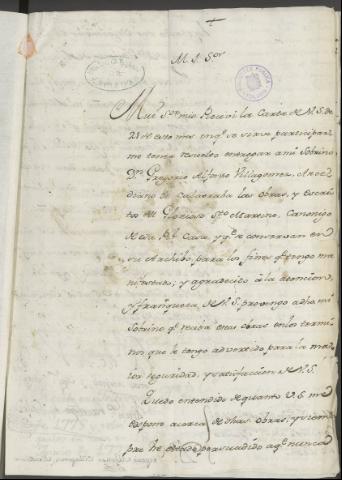 M. S. Sor
Muy Sor mio Recivi la Carta de V.S. de
21 de este mes en q.e se sirve participarme
me tenia resuelto entregar a mi Sobrino
Dn Gregorio Alfonso Villagomez Arce
diano de Calatraba las obras, y escri
tos del Glorioso Sto Martino, Canonigo
de esa Rl Casa, y q.e se conservan en
su Archibo, para los fines q.e tengo ma
nifestado; y agradecido â la atencion,
y franqueza de V.S. prevengo a dho mi
Sobrino q.e reciba esas obras en los termi
nos que le tengo advertido para la ma
ior seguridad, y satisfaccion de V.S.
Quedo entendido de quanto V.S. me
expone acerca de dhas obras, y siem
pre he estado persuadido a q.e nunca